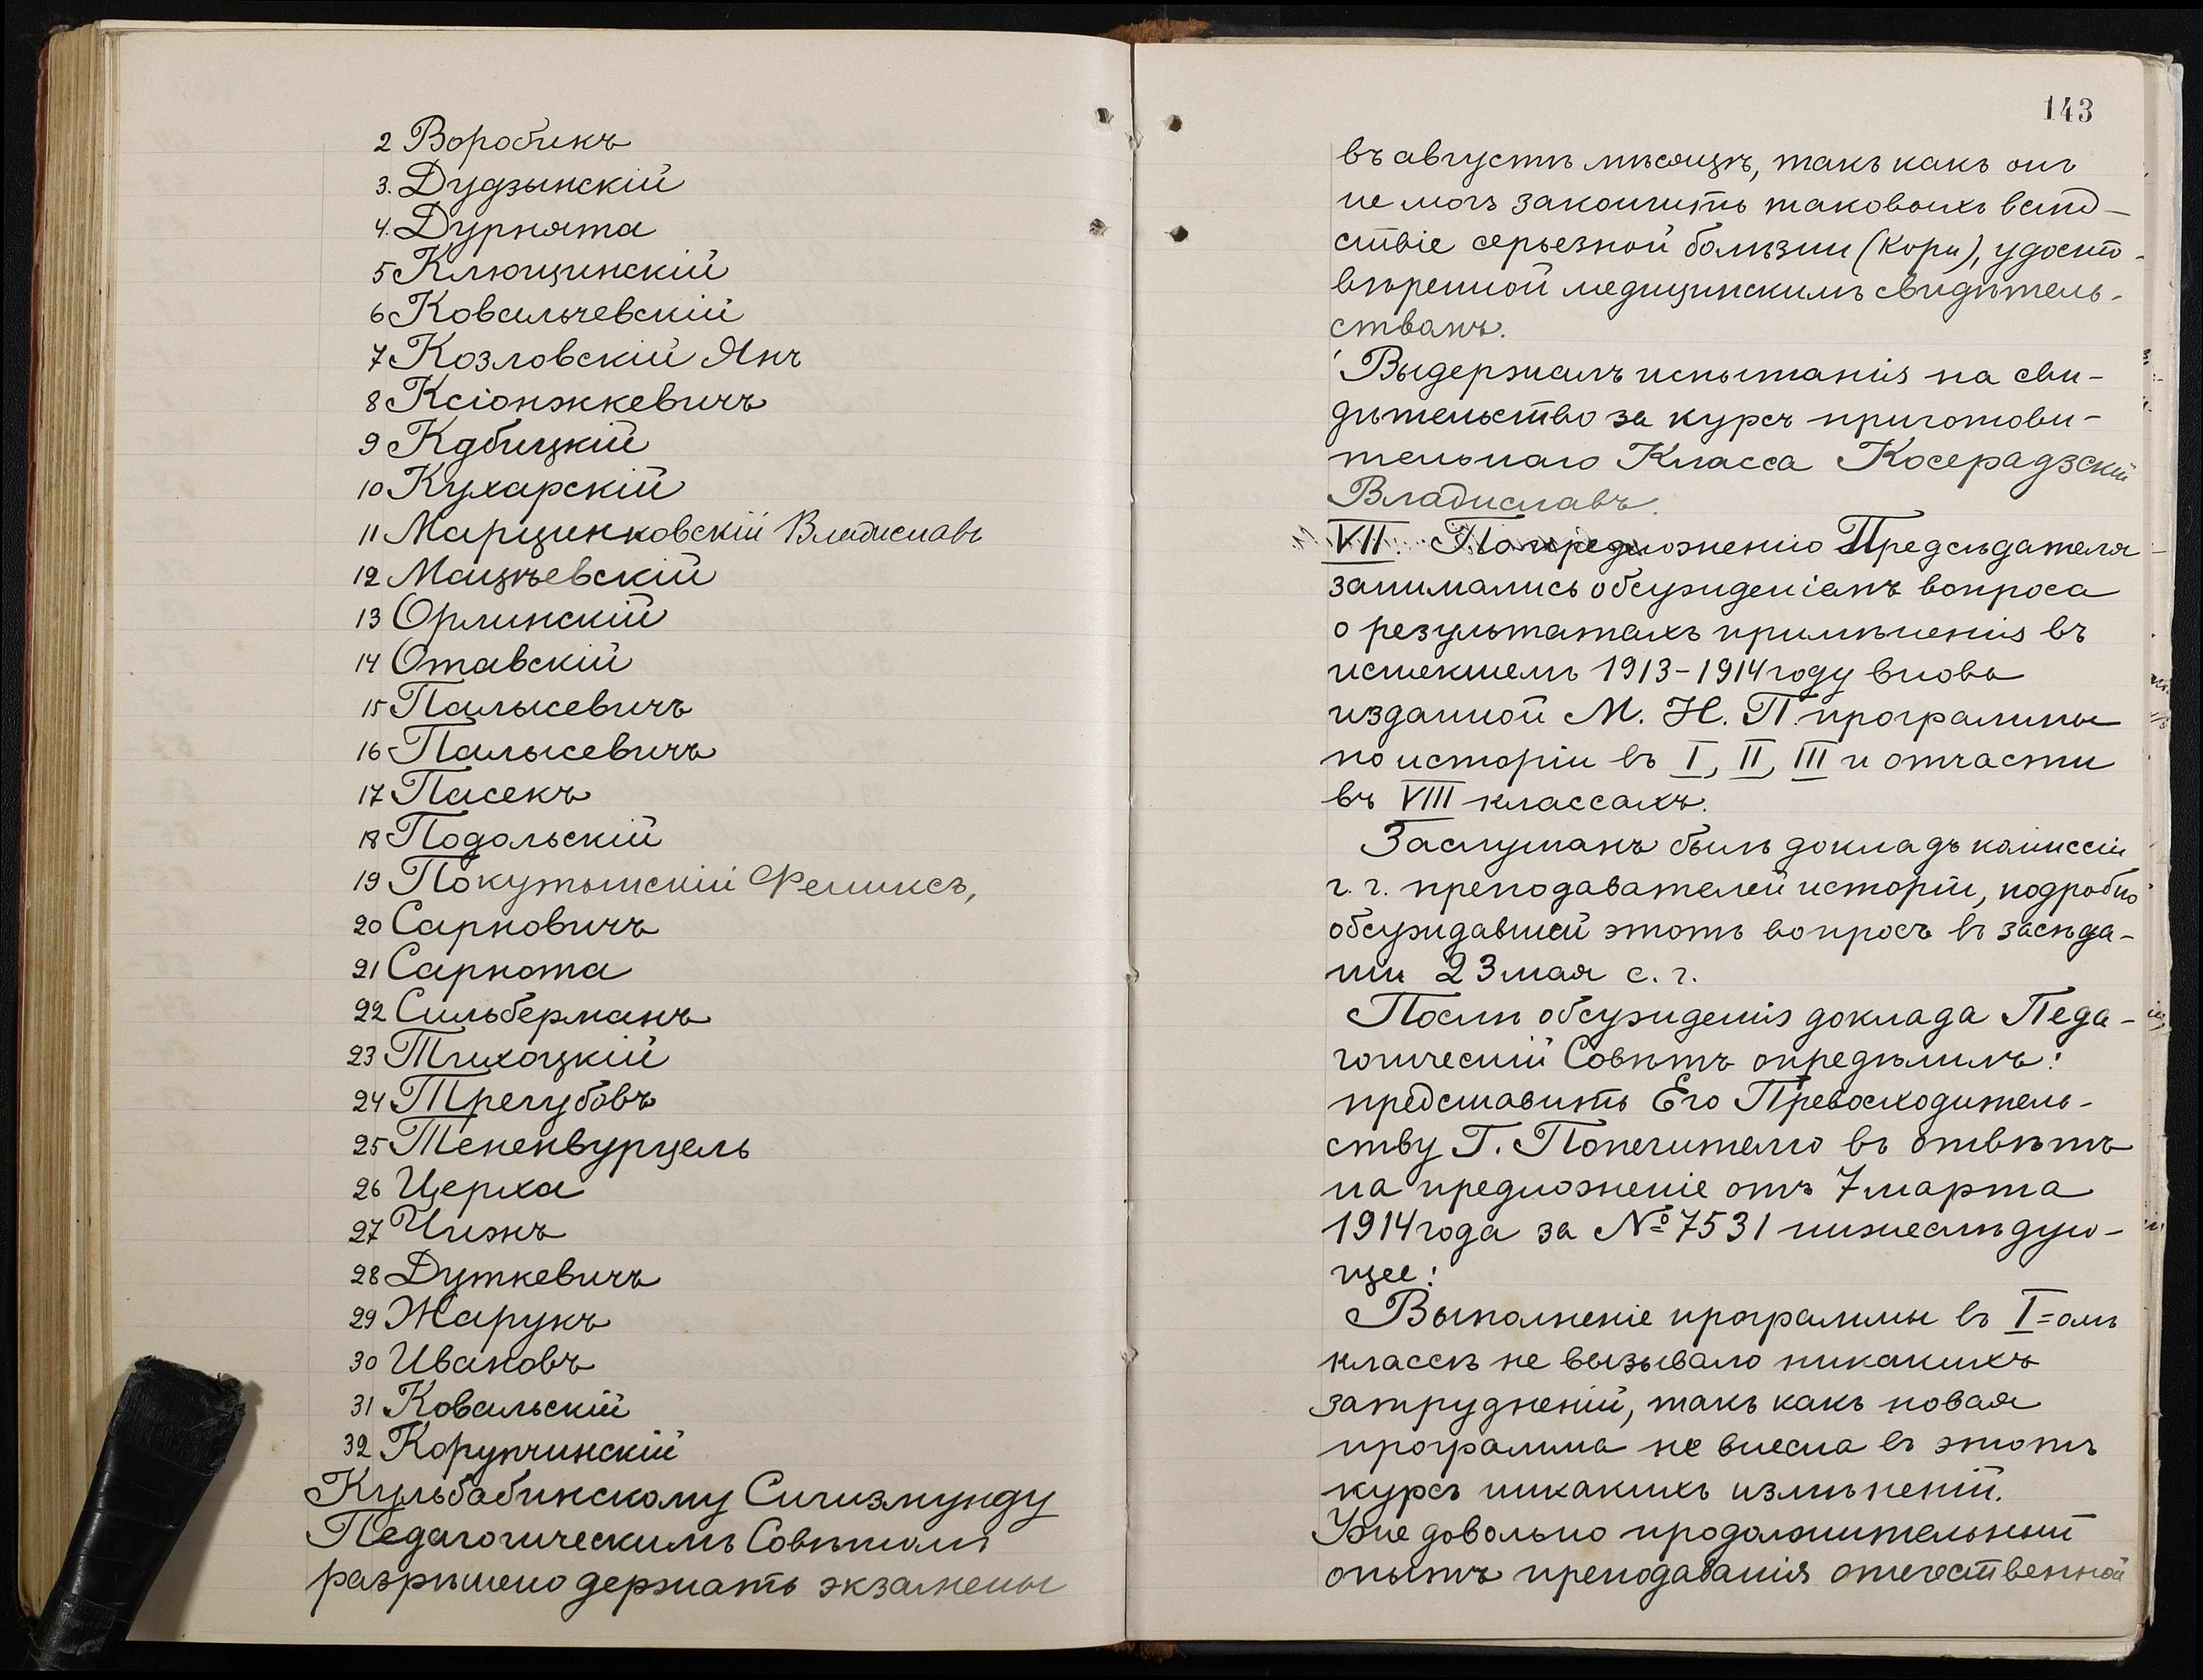 2 Воробикъ
3. Дудзынскій
4. Дурнята
5 Клющинскій
6 Ковальчевскій
7 Козловскій Янъ
8 Ксіонжкевичъ
9 Кдбицкій
10 Кухарскій
11 Марцинковскій Владиславъ
12 Мацѣевскій
13 Орлинскій
14 Отавскій
15 Палысевичъ
16 Палысевичъ
17 Пасекъ
18 Подольскій
19 Покутынскій Феликсъ,
20 Сарновичъ
21 Сарнота
22 Сильберманъ
23 Тлихоцкій
24 Трегубовъ
25 Тененвурцель
26 Церха
27 Чижъ
28 Дуткевичъ
29 Жарукъ
30 Ивановъ
31 Ковальскій
32 Корупчинскій
Кульбабинскому Сигизмунду
Педагогическимъ Совѣтомъ
разрѣшено держать экзамены
143
въ августѣ мѣсяцѣ, такъ какъ онъ
не могъ закончить таковыхъ вслѣд-
ствіе серьезной болѣзни (кори), удосто-
вѣренной медицинскимъ свидѣтель-
ствомъ.
Выдержалъ испытанія на сви-
дѣтельство за курсъ приготови-
тельнаго Класса Косерадзскій
Владиславъ.
VII. По предложенію Предсѣдателя
занимались обсужденіемъ вопроса
о результатахъ примѣненія въ
истекшемъ 1913-1914 году вновь
изданной М. Н. П. программы
по исторіи въ I, II, III и отчасти
въ VIII классахъ.
Заслушанъ былъ докладъ комиссіи
г. г. преподавателей исторіи, подробно
обсуждавшей этотъ вопросъ въ засѣда-
ніи 23 мая с. г.
Послѣ обсужденія доклада Педа-
гогическій Совѣтъ опредѣлилъ:
представить Его Превосходитель-
ству Г. Попечителю въ отвѣтъ
на предложеніе отъ 7 марта
1914 года за № 7531 нижеслѣдую-
щее:
Выполненіе программы въ I=омъ
классѣ не вызывало никакихъ
затрудненій, такъ какъ новая
программа не внесла въ этотъ
курсъ никакихъ измѣненій.
Уже довольно продолжительный
опытъ преподаванія отечественной